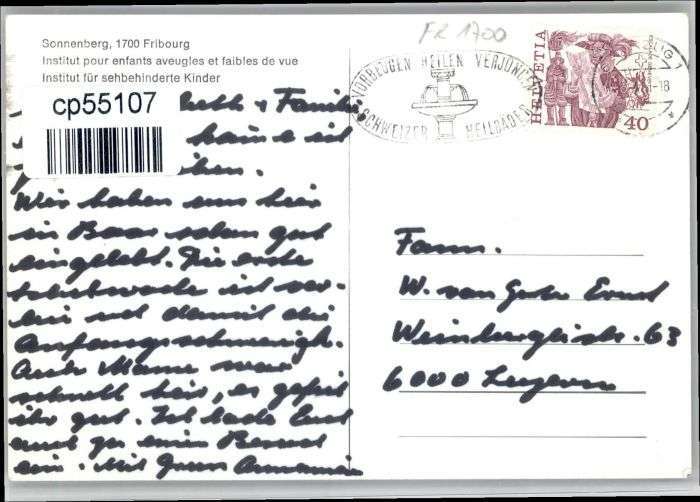 FR 1700
Sonnenberg, 1700 Fribourg
Institut pour enfants aveugles et faibles de vue
Institut für sehbehinderte Kinder
cp55107
VORBEUGEN HEILEN VERJÜNGEN
SCHWEIZER HEILBÄDER
HELVETIA
40
Ruth + Familie
ist
Wir haben uns hier
in Baar schon gut
eingelebt. Die erste
Arbeitswoche ist vor-
bei und damit die
Anfangsschwierigk.
Auch Mama war
schnell hier, es gefiel
ihr gut. Ich lade Euch
auch zu einem Besuch
ein. Mit Gruss Annamarie
Fam.
W. von Ernst
Weinberglistr. 63
6000 Luzern